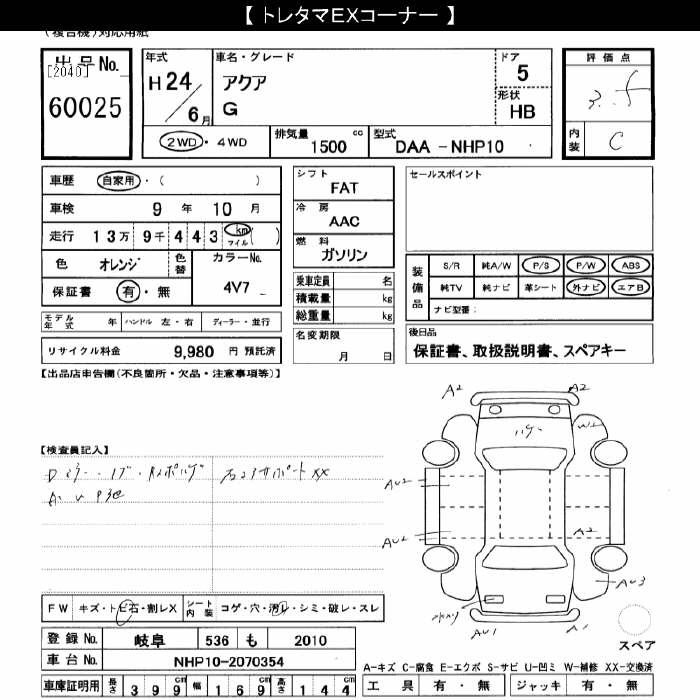 【 トレタマEXコーナー 】
(複合機)対応用紙
出品No.
[2040]
60025
年式
H24/6月
車名・グレード
アクア
G
ドア
5
形状
HB
評価点
3.5
内装
C
2WD・4WD
排気量 1500 cc
型式 DAA - NHP10
車歴 自家用・( )
車検 9年 10月
走行 13万 9千 443 km マイル ( )
色 オレンジ
色替
カラーNo.
4V7
保証書 有・無
モデル年式 年
ハンドル 左・右
ディーラー・並行
リサイクル料金 9,980 円 預託済
シフト
FAT
冷房
AAC
燃料
ガソリン
乗車定員 名
積載量 kg
総重量 kg
名変期限
月 日
セールスポイント
装備品
S/R 純A/W P/S P/W ABS
純TV 純ナビ 革シート 外ナビ エアB
ナビ型番:
後日品
保証書、取扱説明書、スペアキー
【出品店申告欄(不良箇所・欠品・注意事項等)】
【検査員記入】
A2
A2
W2
AU2
AU2
A2
AU3
AU1
A1
スペア
FW キズ・トビ石・割レX
シート内装 コゲ・穴・汚レ・シミ・破レ・スレ
登録No. 岐阜 536 も 2010
車台No. NHP10-2070354
車庫証明用 長さ 399 幅 169 高さ 144
A-キズ C-腐食 E-エクボ S-サビ U-凹ミ W-補修 XX-交換済
工具 有・無
ジャッキ 有・無